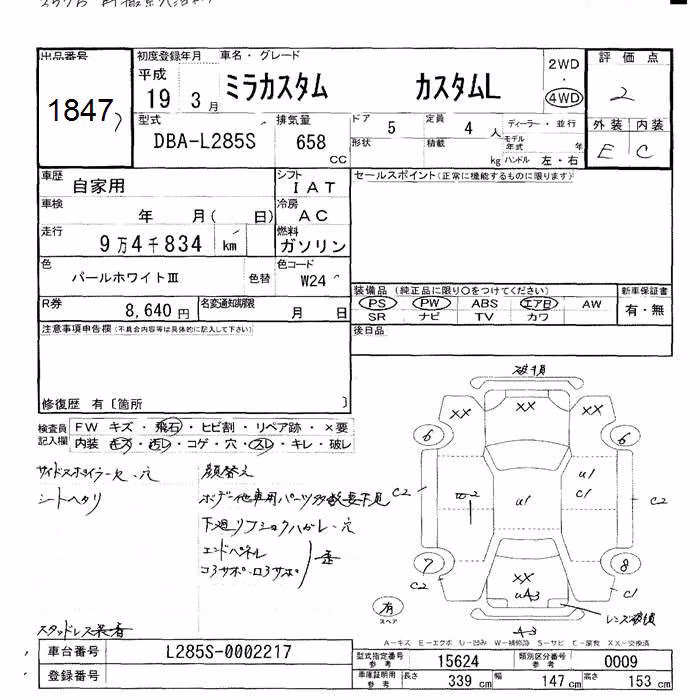 出品番号 初度登録年月 車名・グレード 評価点
1847
平成 19 3月 ミラカスタム カスタムL 2WD・4WD 2
型式 DBA-L285S 排気量 658 CC ドア 5 定員 4 人 ディーラー・並行 外装 内装
形状 積載 kg モデル年式 年 ハンドル 左・右 E C
車歴 自家用 シフト IAT セールスポイント(正常に機能するものに限ります)
車検 年 月( 日) 冷房 AC
走行 9万4千834 km 燃料 ガソリン
色 パールホワイトIII 色替 色コード W24
装備品 (純正品に限り○をつけてください) 新車保証書
R券 8,640円 名変通知期限 月 日 PS PW ABS エアB AW 有・無
SR ナビ TV カワ
注意事項申告欄(不具合内容等は具体的に記入して下さい) 後日品
修復歴 有〔箇所 〕
検査員記入欄 FW キズ・飛石・ヒビ割・リペア跡・×要
内装 キズ・汚レ・コゲ・穴・スレ・キレ・破レ
破損
XX XX
6 6
サイドスポイラー欠、穴
シートヘタリ
下廻リ
エンドパネル
コアサポ・ロアサポ
C2 W2 U1 U1 C1 C2
7 8
XX
UA3
C2 C1
有 スペア
レンズ破損
A3
スタッドレス装着
A-キズ E-エクボ U-凹み W-補修跡 S-サビ C-腐食 XX-交換済
車台番号 L285S-0002217 型式指定番号 参考 15624 類別区分番号 参考 0009
登録番号 車庫証明用 参考 長さ 339 cm 幅 147 cm 高さ 153 cm